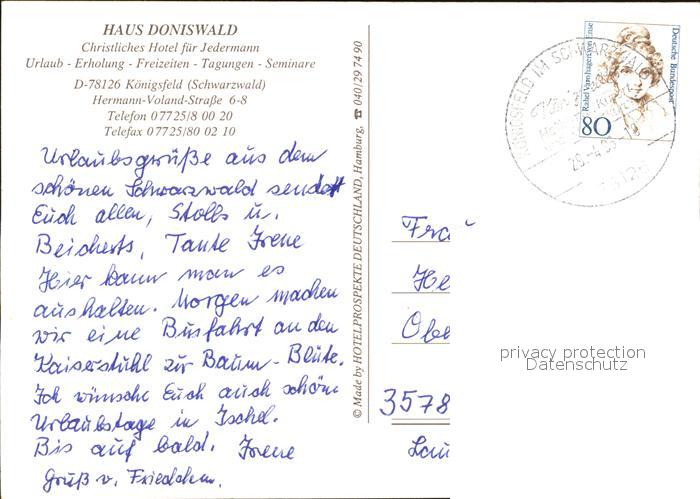 HAUS DONISWALD
Christliches Hotel für Jedermann
Urlaub - Erholung - Freizeiten - Tagungen - Seminare
D-78126 Königsfeld (Schwarzwald)
Hermann-Voland-Straße 6-8
Telefon 07725/8 00 20
Telefax 07725/80 02 10
Urlaubsgrüße aus dem
schönen Schwarzwald sendet
Euch allen, Stolls u.
Beicherts, Tante Irene
Hier kann man es
aushalten. Morgen machen
wir eine Busfahrt an den
Kaiserstuhl zur Baum-Blüte.
Ich wünsche Euch auch schöne
Urlaubstage in Ischel.
Bis auf bald. Irene
Gruß v. Friedchen.
© Made by HOTELPROSPEKTE DEUTSCHLAND, Hamburg, ☎ 040/29 74 90
KÖNIGSFELD IM SCHWARZWALD
Rahel Varnhagen von Ense
Deutsche Bundespost
80
Frau
He
Obe
3578
Lau
privacy protection
Datenschutz